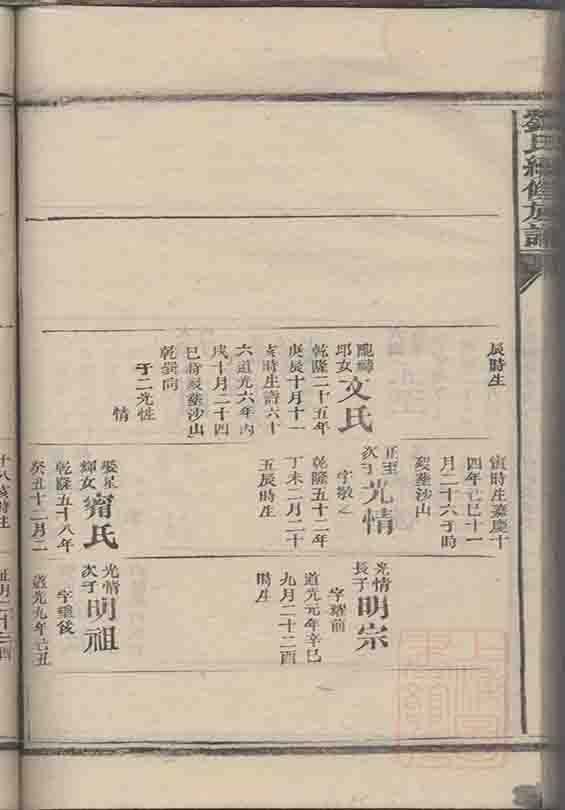 劉氏續修族譜
辰時生
邱女文氏
乾隆二十五年
庚辰十月十一
亥時生壽六十
六道光六年丙
戌十月二十四
巳時歿葬沙山
乾巽向
子二光性
情
寅時生嘉慶十
四年己巳十一
月二十六子時
歿葬沙山
正玉次子光情
字敬之
乾隆五十二年
丁未二月二十
五辰時生
娶星輝女甯氏
乾隆五十八年
癸丑十二月二
光情長子明宗
字耀前
道光元年辛巳
九月二十二酉
時生
光情次子明祖
字耀後
道光九年己丑
十八亥時生